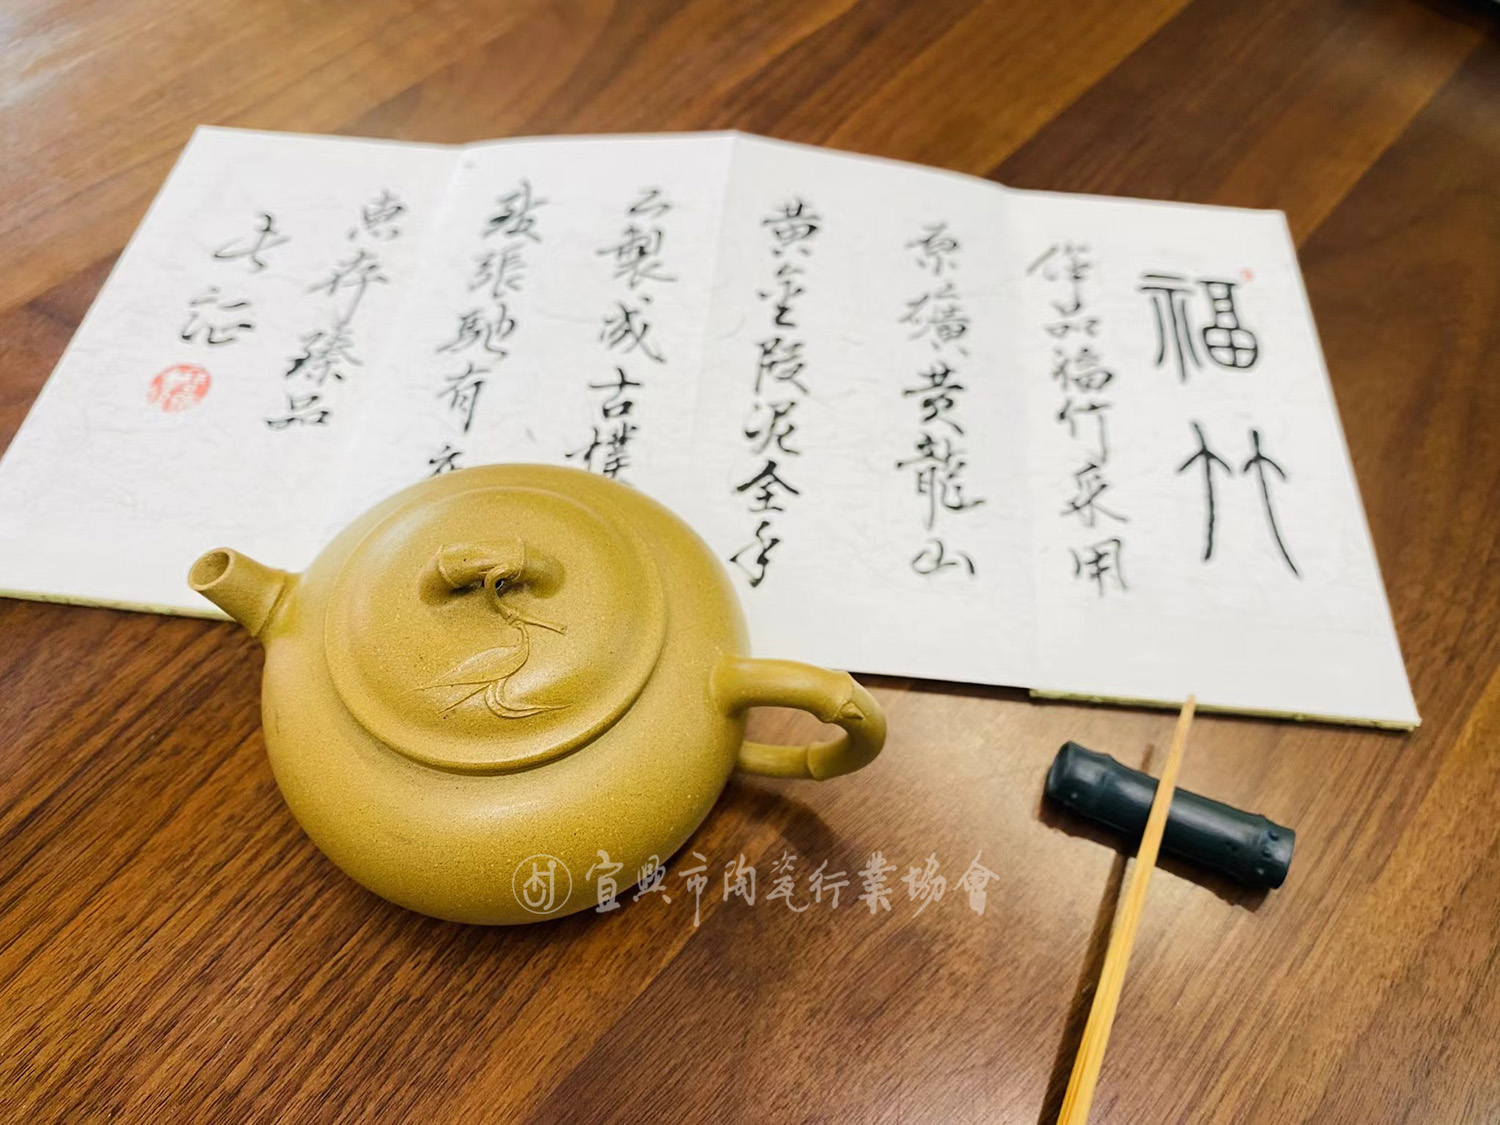 福竹
作品福竹采用
原礦黄龍山
黄金段泥全手
工製成古樸
張馳有
惠存臻品
此証
宜興市陶瓷行業協會